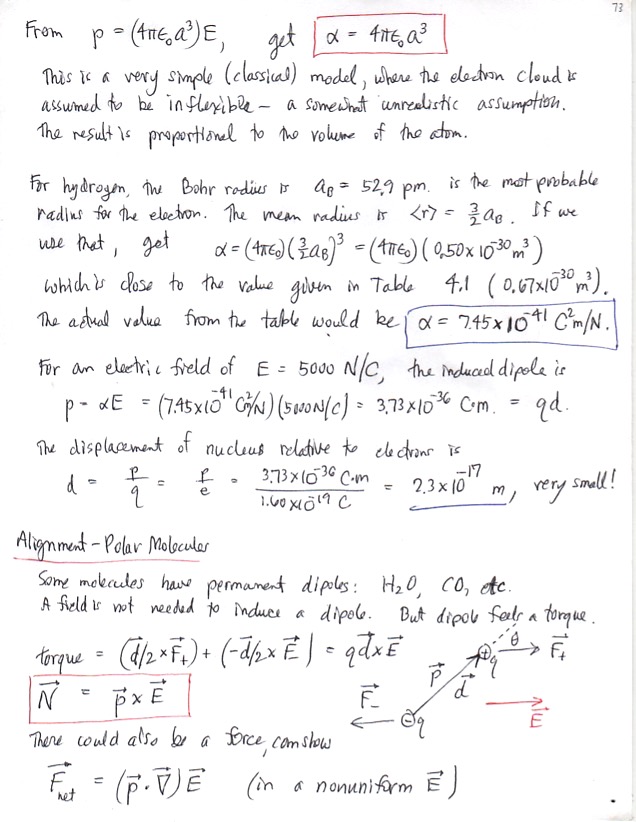 73
From p = (4πε₀a³)E, get α = 4πε₀a³
This is a very simple (classical) model, where the electron cloud is
assumed to be inflexible – a somewhat unrealistic assumption.
The result is proportional to the volume of the atom.
For hydrogen, the Bohr radius is a_B = 52.9 pm. is the most probable
radius for the electron. The mean radius is <r> = 3/2 a_B. If we
use that, get α = (4πε₀)(3/2 a_B)³ = (4πε₀)(0.50 x 10⁻³⁰ m³)
which is close to the value given in Table 4.1 (0.67x10⁻³⁰ m³).
The actual value from the table would be α = 7.45 x 10⁻⁴¹ C²m/N.
For an electric field of E = 5000 N/C, the induced dipole is
p = αE = (7.45x10⁻⁴¹ C²m/N)(5000 N/C) = 3.73 x 10⁻³⁶ C·m. = qd.
The displacement of nucleus relative to electrons is
d = p/q = p/e = 3.73x10⁻³⁶ C·m / 1.60x10⁻¹⁹ C = 2.3 x 10⁻¹⁷ m, very small!
Alignment – Polar Molecules
Some molecules have permanent dipoles: H₂O, CO, etc.
A field is not needed to induce a dipole. But dipole feels a torque.
torque = (d⃗/2 x F⃗₊) + (-d⃗/2 x E⃗) = qd⃗ x E⃗
N⃗ = p⃗ x E⃗
θ
F⃗₊
⊕q
p⃗
d⃗
F⃗₋
⊖q
E⃗
There could also be a force, can show
F⃗net = (p⃗ · ∇⃗) E⃗ (in a nonuniform E⃗)